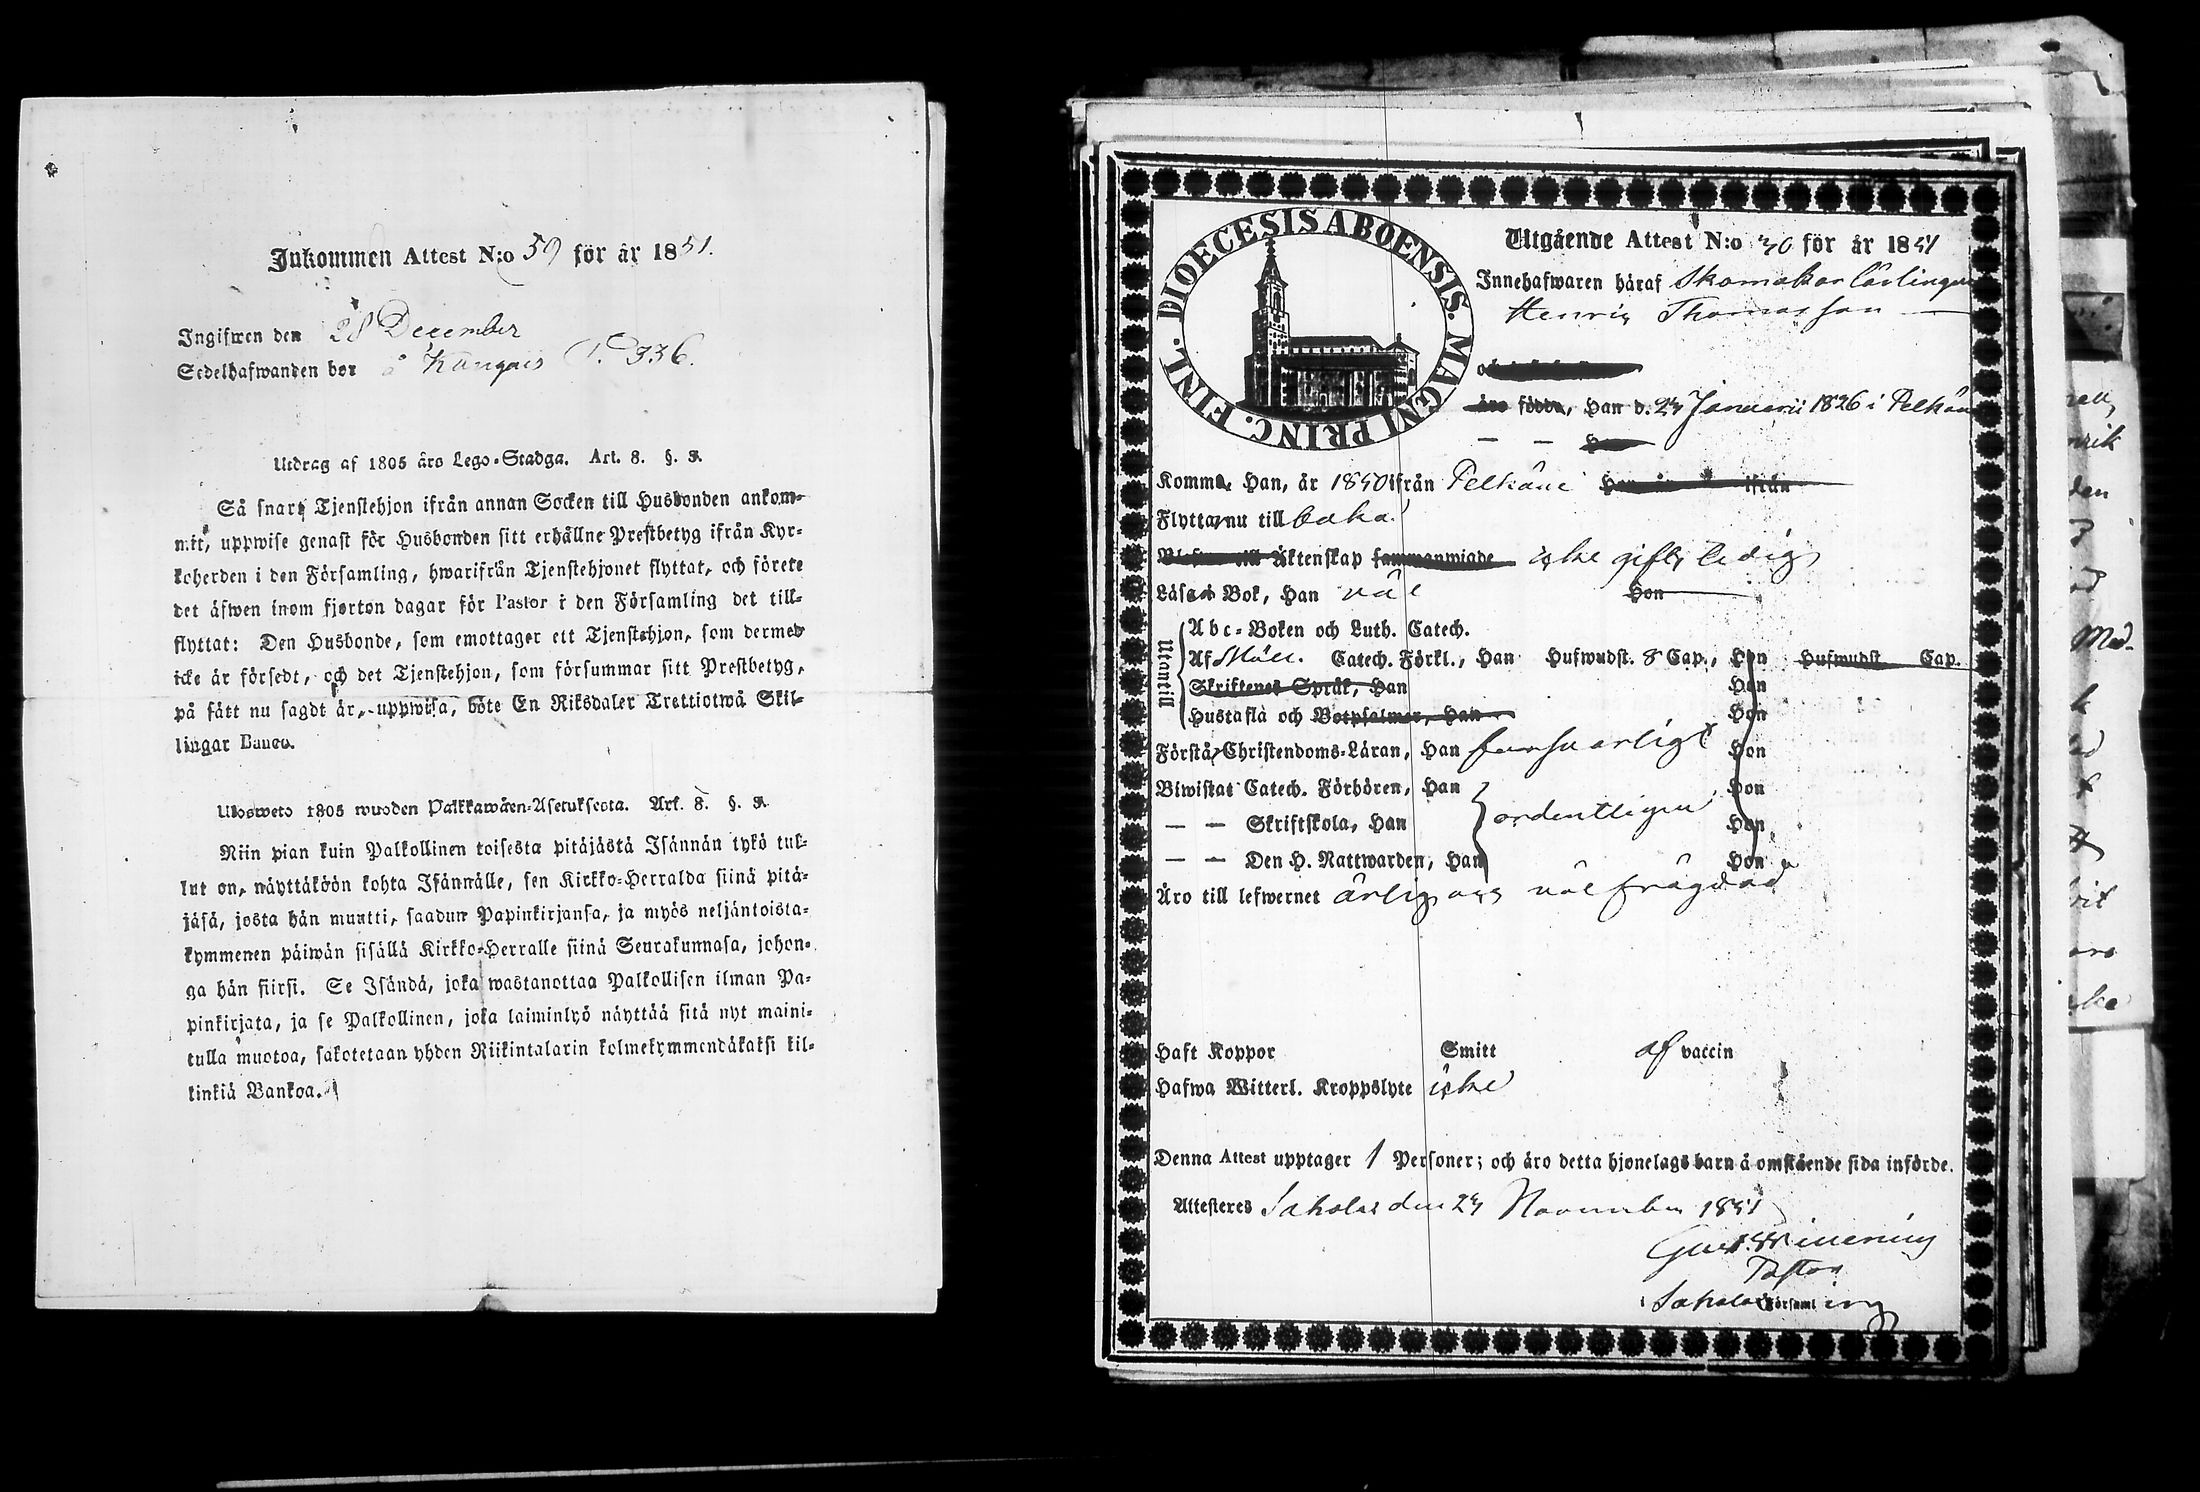 Inkommen Attest N:o 59 för år 1851.
Ingifwen den 28 December
Sedelhafwanden bor å Kangais P. 336.
Utdrag af 1805 års Lego-Stadga. Art. 8. §. 3.
Så snart Tjenstehjon ifrån annan Socken till Husbonden ankom-
mit, uppwise genast för Husbonden sitt erhållne Prestbetyg ifrån Kyr-
koherden i den Församling, hwarifrån Tjenstehjonet flyttat, och förete
det äfwen inom fjorton dagar för Pastor i den Församling det till-
flyttat: Den Husbonde, som emottager ett Tjenstehjon, som dermed
icke är försedt, och det Tjenstehjon, som försummar sitt Prestbetyg,
på sätt nu sagdt är, uppwisa, böte En Riksdaler Trettiotwå Skil-
lingar Banco.
Ulosweto 1805 wuoden Palkkawäen-Asetuksesta. Art. 8. §. 3.
Niin pian kuin Palkollinen toisesta pitäjästä Isännän tykö tul-
lut on, näyttäköön kohta Isännälle, sen Kirkko-Herralda siinä pitä-
jäsä, josta hän muutti, saadun Papinkirjansa, ja myös neljäntoista-
kymmenen päiwän sisällä Kirkko-Herralle siinä Seurakunnasa, johon-
ga hän siirsi. Se Isändä, joka wastanottaa Palkollisen ilman Pa-
pinkirjata, ja se Palkollinen, joka laiminlyö näyttää sitä nyt maini-
tulla muotoa, sakotetaan yhden Riikintalarin kolmekymmendäkaksi kil-
linkiä Bankoa.
DIOECESIS ABOENSIS. MAGNI PRINC. FINL.
Utgående Attest N:o 30 för år 1851
Innehafwaren häraf Skomakar Lärlingen
Henric Thomasson
äro födde, Han d. 24 Januarii 1826 i Pelkäne
Komma, Han, år 1850 ifrån Pelkäne Hon år ifrån
Flytta nu till baka
Äktenskap sammanwigde icke gift, ledig
Läsa i Bok, Han väl Hon
Utantill
Abc-Boken och Luth. Catech.
Af Möll. Catech. Förkl., Han Hufwudst. 8 Cap., Hon Hufwudst. Cap.
Skriftenes Språk, Han Hon
Hustafla och Botpsalmer, Han Hon
Förstå Christendoms-Läran, Han försvarligt Hon
Biwistat Catech. Förhören, Han Hon
— — Skriftskola, Han ordentligen Hon
— — Den H. Nattwarden, Han Hon
Äro till lefwernet ärlig och väl frägdad
Haft Koppor Smitt af vaccin
Hafwa Witterl. Kroppslyte icke
Denna Attest upptager 1 Personer; och äro detta hjonelags barn å omstående sida införde.
Attesteres Sahalax den 24 November 1851
Gust.
Pastor
i Sahalax Församling